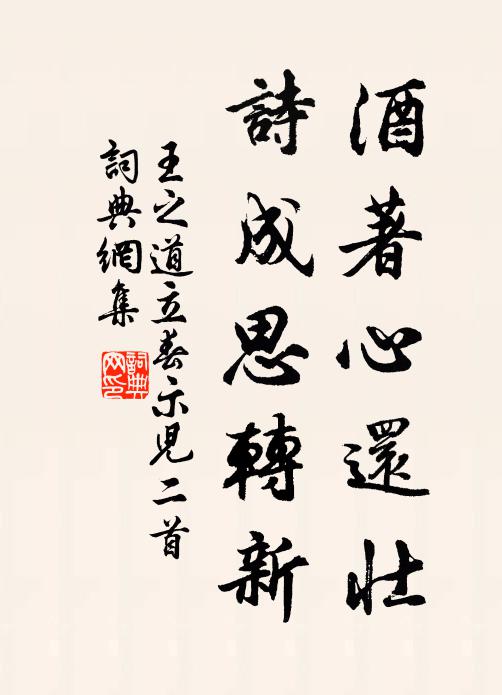 酒著心還壯
詩成思轉新
王之道立春示児二首
詞典網集
詞典網印